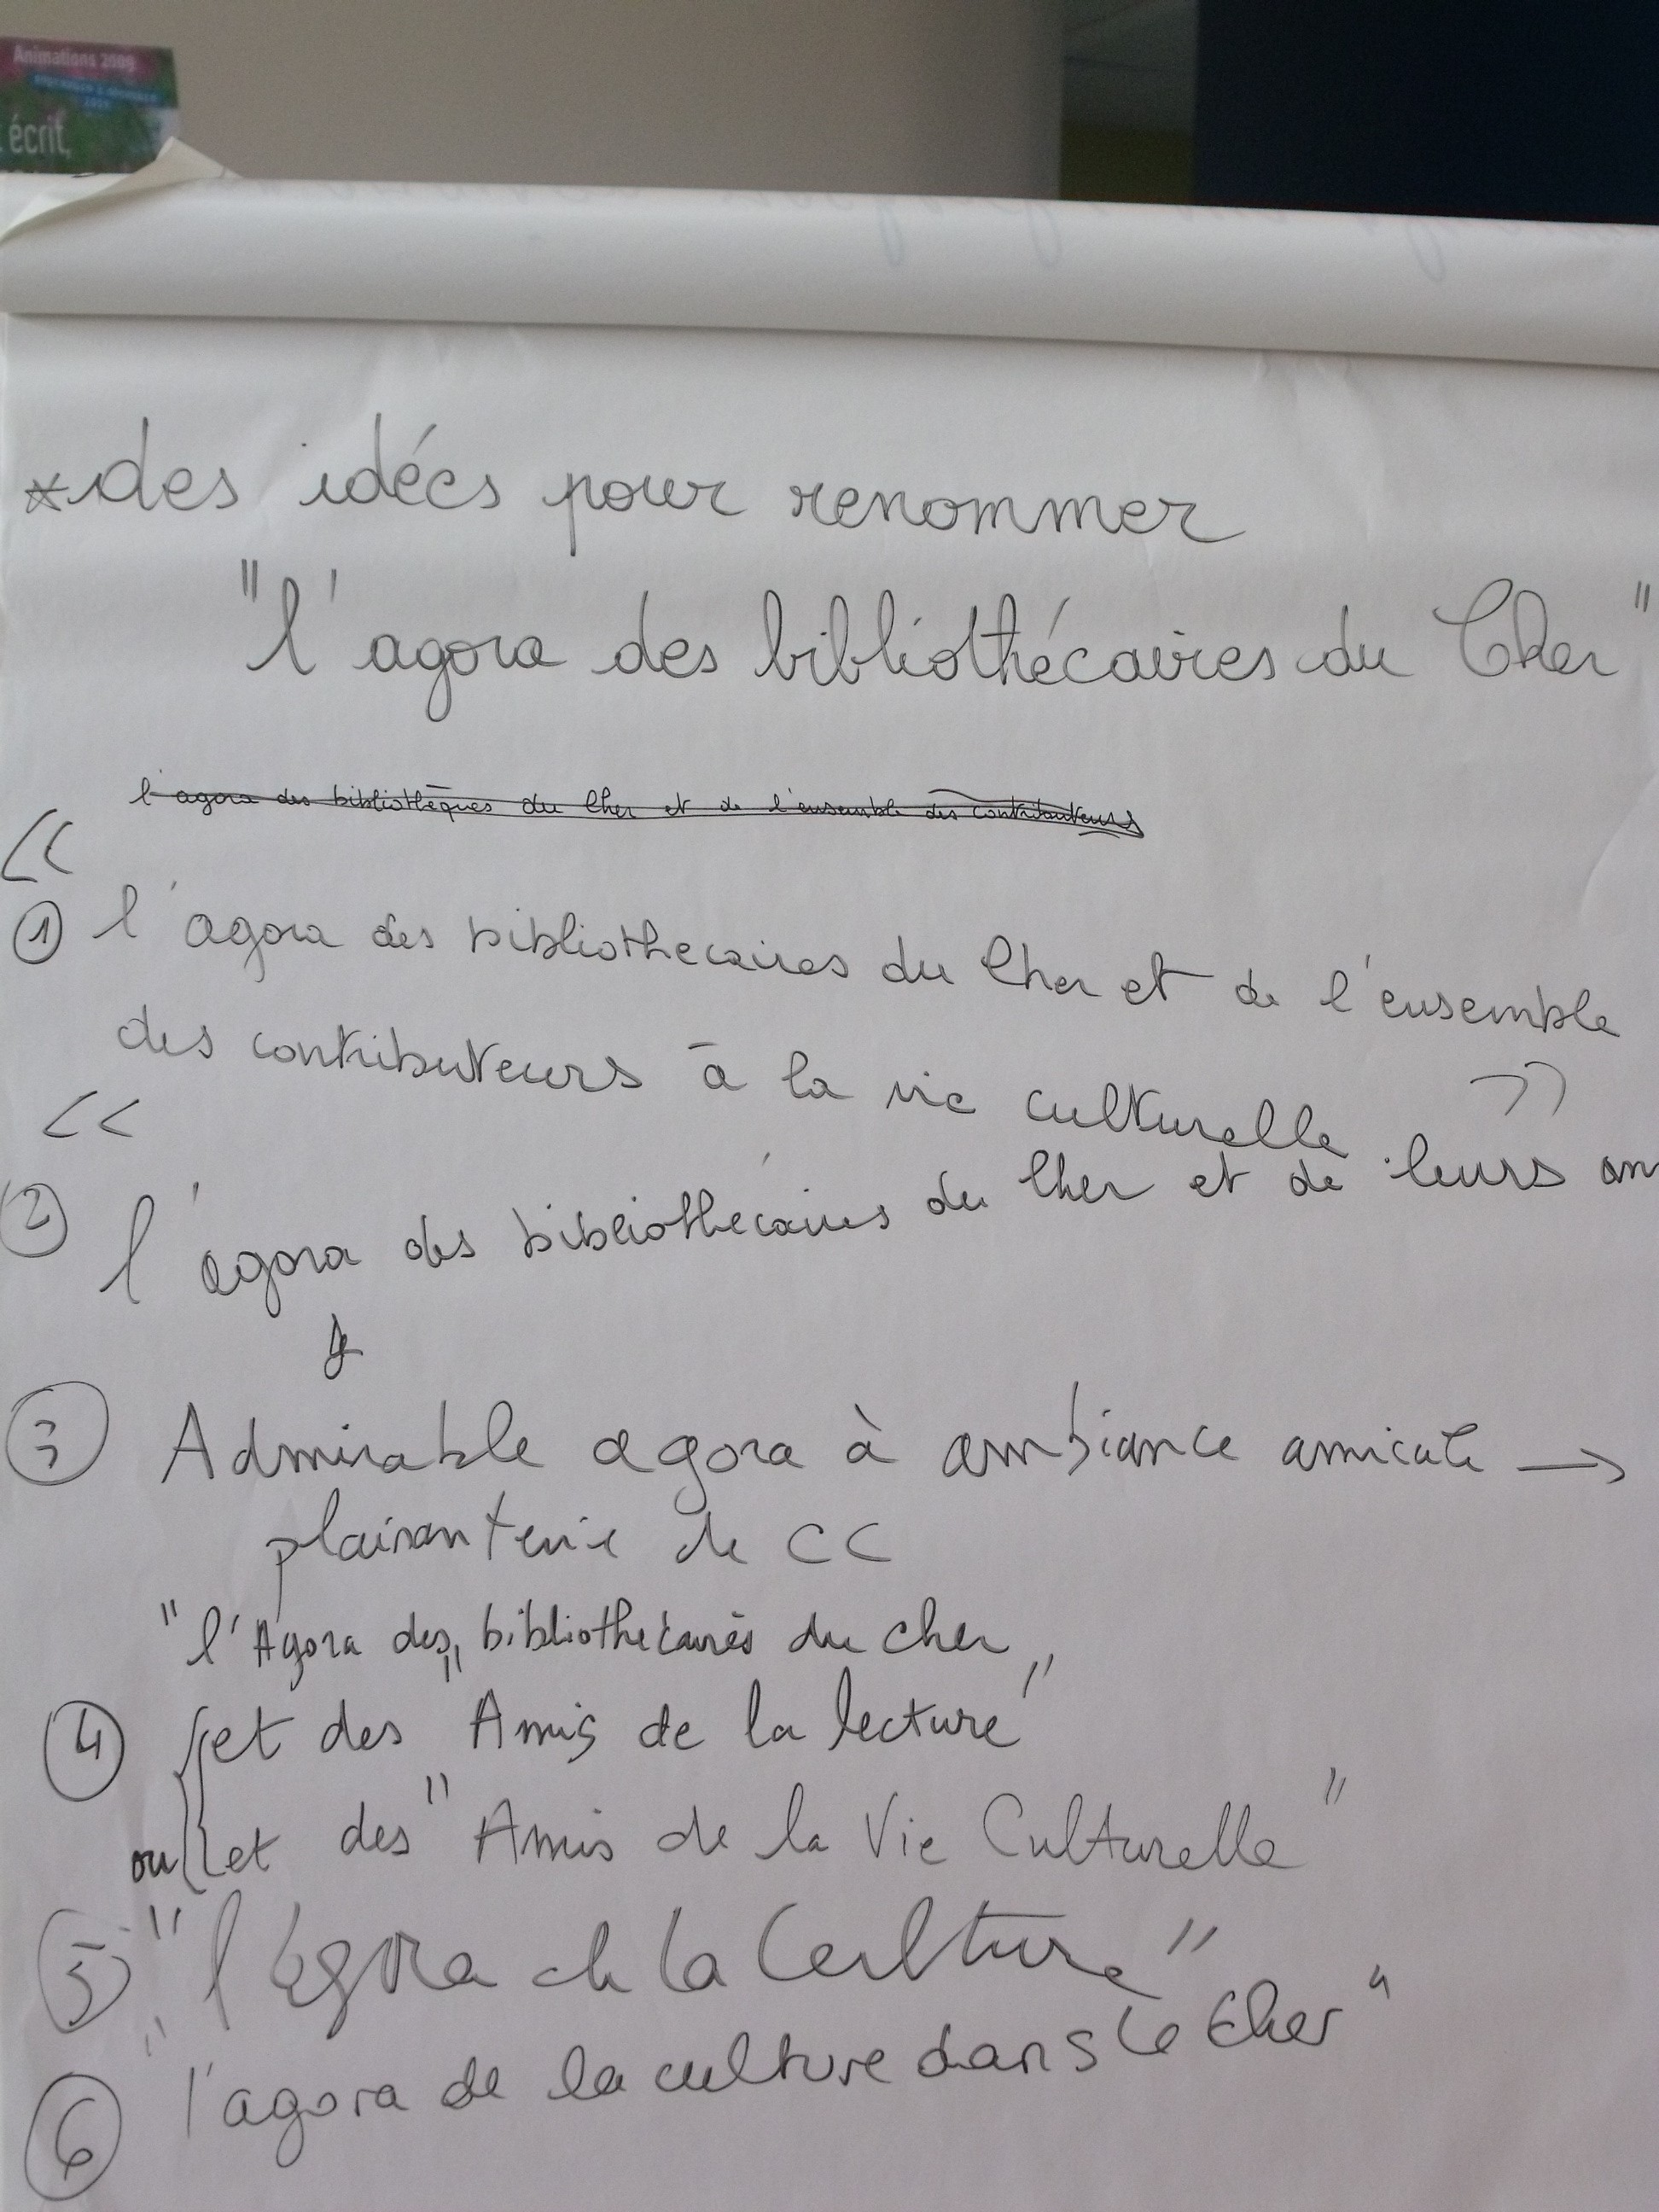 Animations 2009
écrit,
*des idées pour renommer
"l'agora des bibliothécaires du Cher"
l'agora des bibliothèques du Cher et de l'ensemble des contributeurs
<<
① l'agora des bibliothecaires du Cher et de l'ensemble
des contributeurs à la vie culturelle >>
<<
② l'agora des bibliothécaires du Cher et de leurs am
③ Admirable agora à ambiance amicale →
plaisanterie de CC
"l'Agora des "bibliothécaires du cher"
④ et des "Amis de la lecture"
ou et des "Amis de la Vie Culturelle"
⑤ "l'Agora de la Culture"
⑥ "l'agora de la culture dans le Cher"